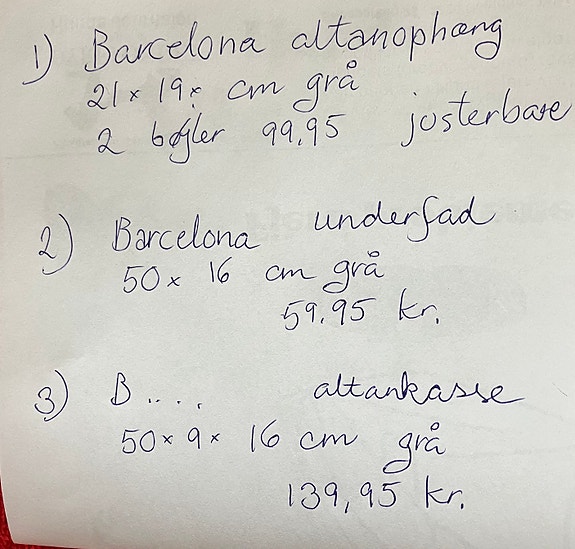 1) Barcelona altanophæng
21 × 19 × cm grå
2 bøjler 99,95 justerbare
2) Barcelona underfad
50 × 16 cm grå
59.95 kr.
3) B.... altankasse
50 × 9 × 16 cm grå
139,95 kr.